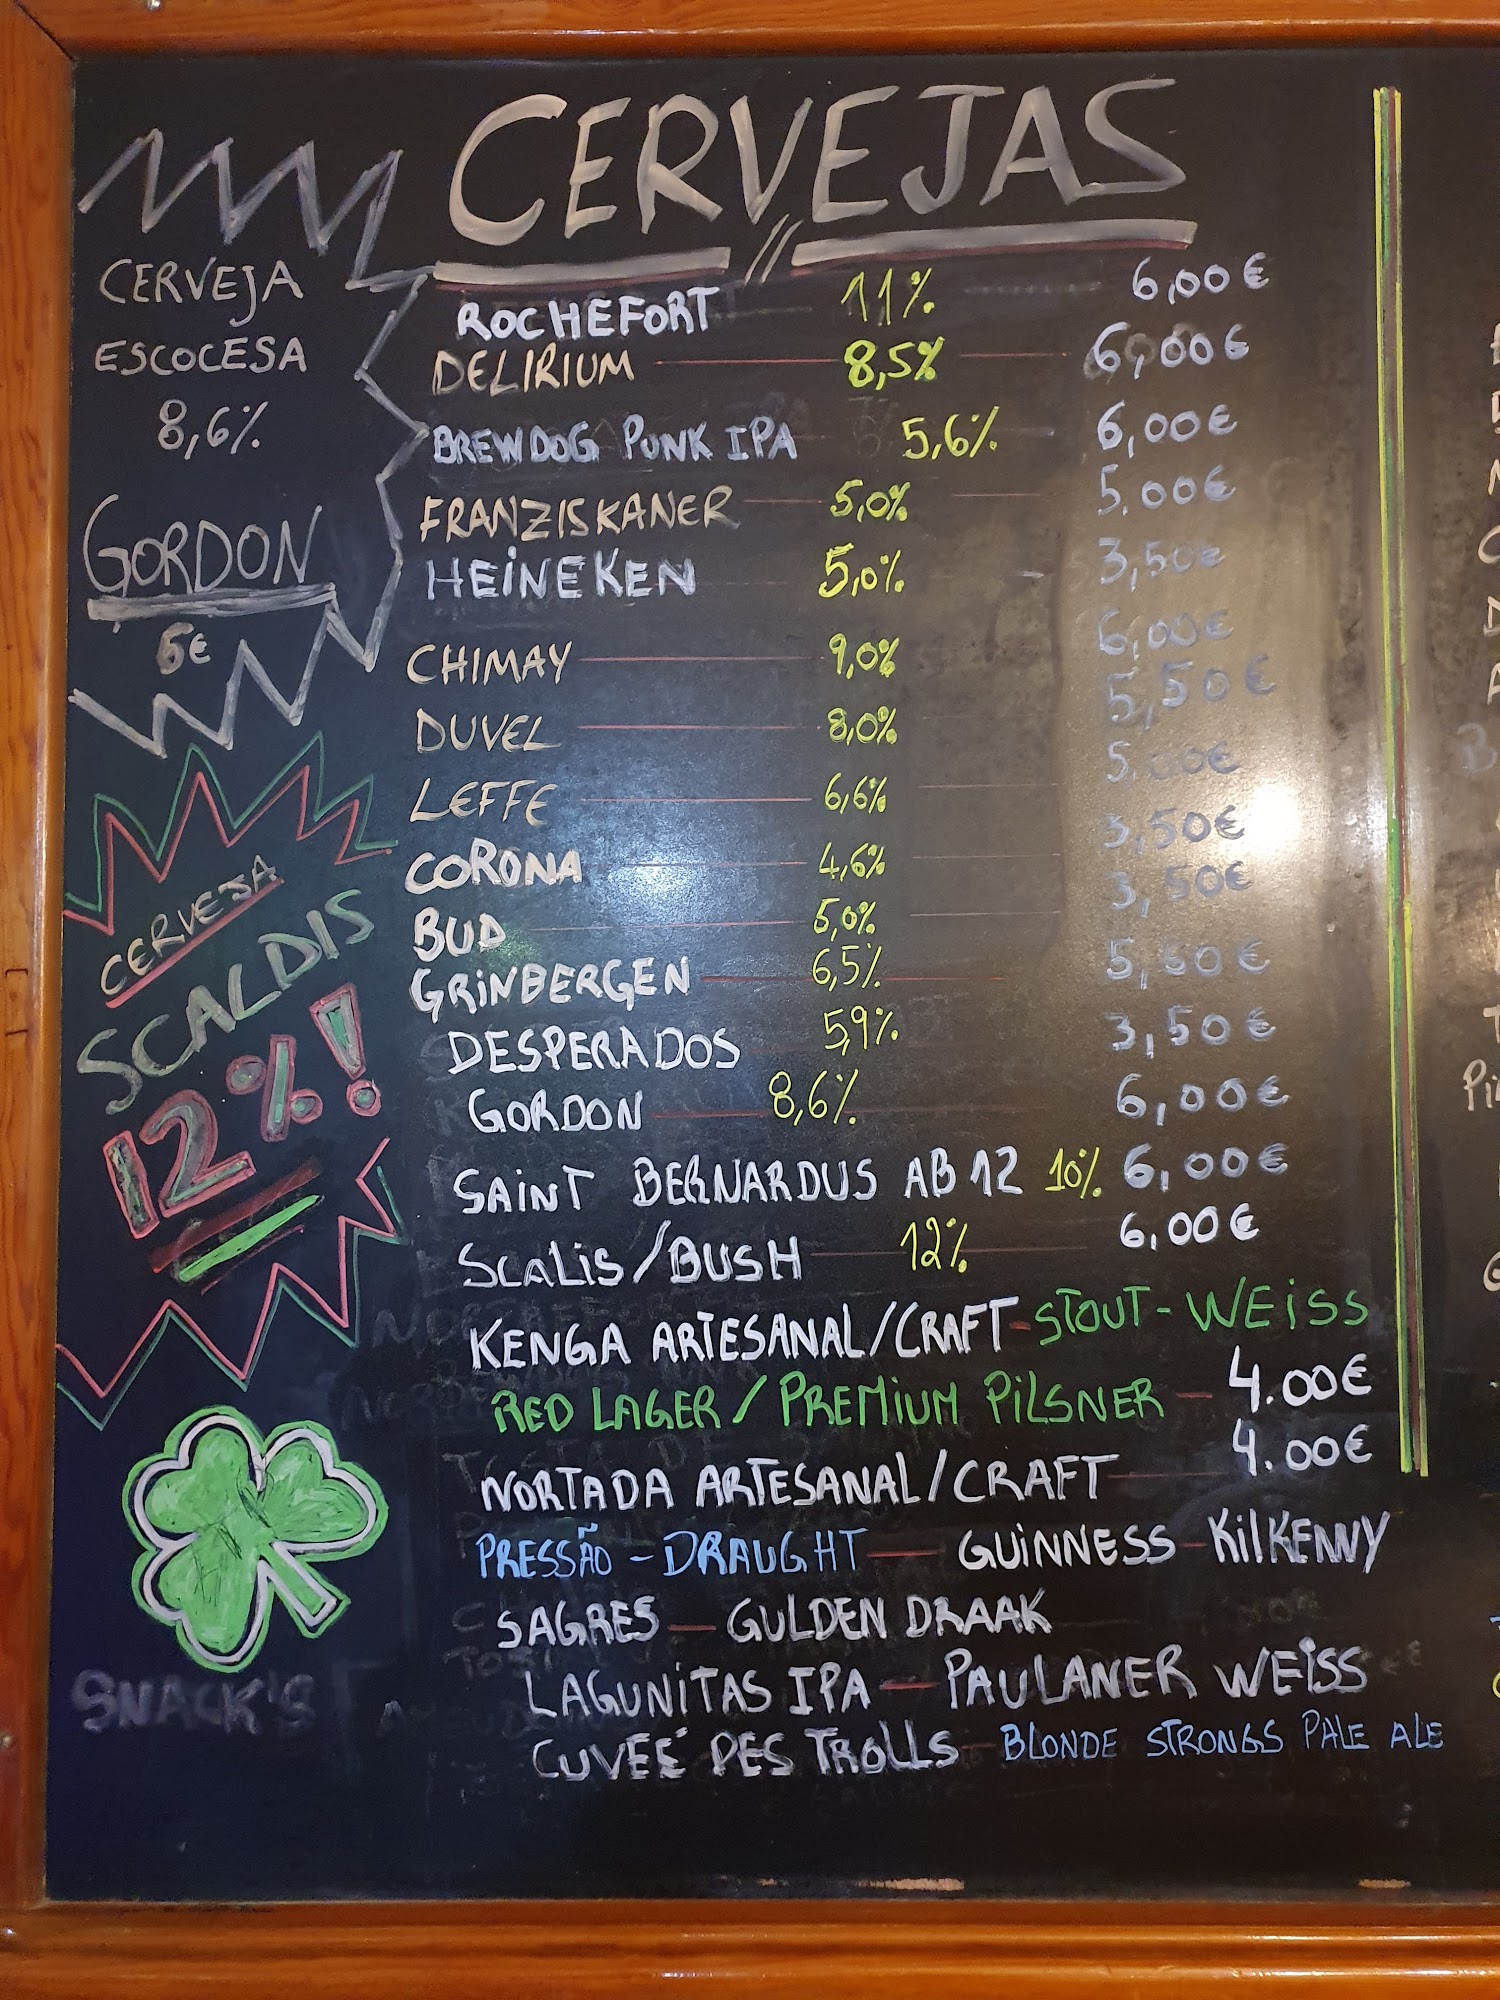 CERVEJAS
CERVEJA
ESCOCESA
8,6%
GORDON
6€
CERVEJA
SCALDIS
12%!
SNACK'S
ROCHEFORT 11% 6,00€
DELIRIUM 8,5% 6,00€
BREWDOG PUNK IPA 5,6% 6,00€
FRANZISKANER 5,0% 5.00€
HEINEKEN 5,0% 3,50€
CHIMAY 9,0% 6,00€
DUVEL 8,0% 5,50€
LEFFE 6,6% 5.00€
CORONA 4,6% 3,50€
BUD 5,0% 3,50€
GRINBERGEN 6,5% 5,50€
DESPERADOS 5,9% 3,50€
GORDON 8,6% 6,00€
SAINT BERNARDUS AB 12 10% 6,00€
SCALIS/BUSH 12% 6,00€
KENGA ARTESANAL/CRAFT - STOUT - WEISS
RED LAGER / PREMIUM PILSNER - 4.00€
NORTADA ARTESANAL/CRAFT 4.00€
PRESSÃO - DRAUGHT — GUINNESS - KILKENNY
SAGRES — GULDEN DRAAK
LAGUNITAS IPA — PAULANER WEISS
CUVEÉ DES TROLLS - BLONDE STRONGS PALE ALE